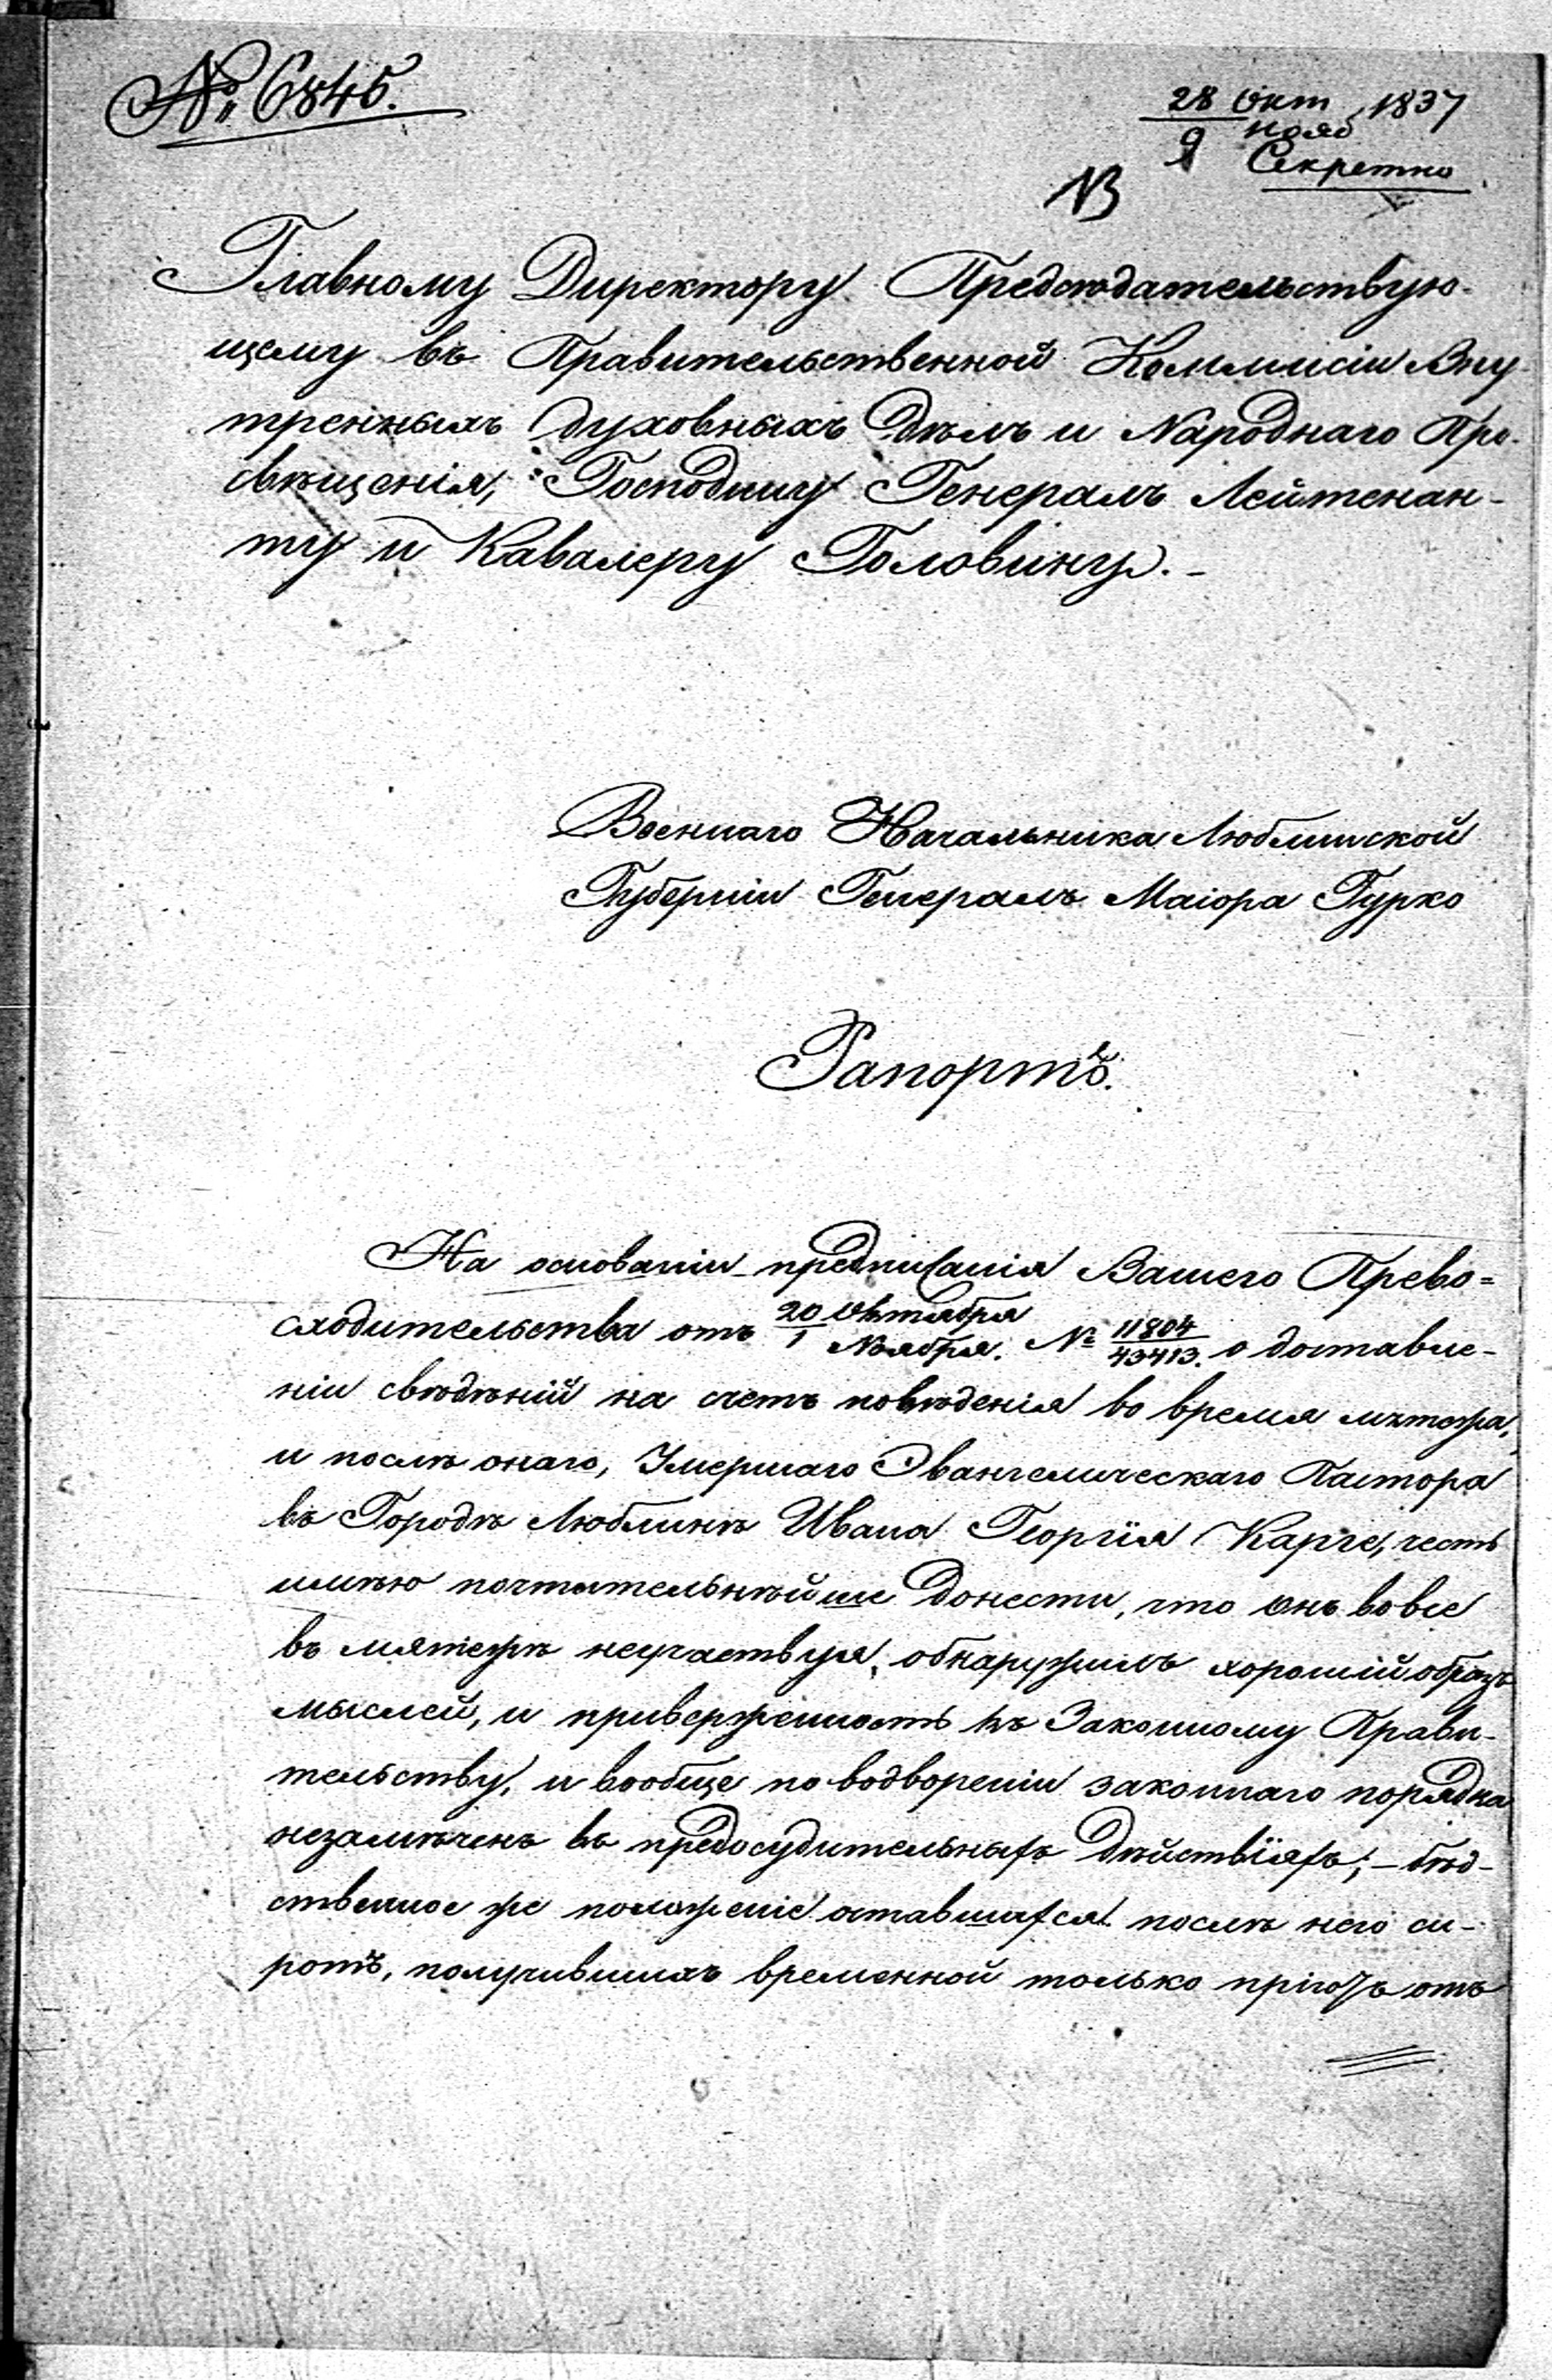 № 6845.
28 Окт 1837
9 нояб
Секретно
13
Главному Директору Предсѣдательствую-
щему въ Правительственной Коммисіи Вну-
тренныхъ Духовныхъ Дѣлъ и Народнаго Про-
свѣщенія, Господину Генералъ Лейтенан-
ту и Кавалеру Головину.-
Военнаго Начальника Люблинской
Губерніи Генералъ Маіора Гурко
Рапортъ.
На основаніи предписанія Вашего Прево=
сходительства отъ 20 Октября / 1 Ноября. № 11804/43413. о доставле-
ніи свѣдѣній на счетъ повѣденія во время мятежа,
и послѣ онаго, Умершаго Эвангелическаго Пастора
въ Городѣ Люблинѣ Ивана Георгія Карге, честь
имѣю почтительнѣйше донести, что онъ вовсе
въ мятежѣ неучаствуя, обнаружилъ хорошій образъ
мыслей, и приверженность къ Законному Прави-
тельству, и вообще по водвореніи законнаго порядка
незамѣченъ въ предосудительныхъ дѣйствіяхъ; - бѣд-
ственное же положеніе оставшихся послѣ него си-
ротъ, получившихъ временной только пріютъ отъ